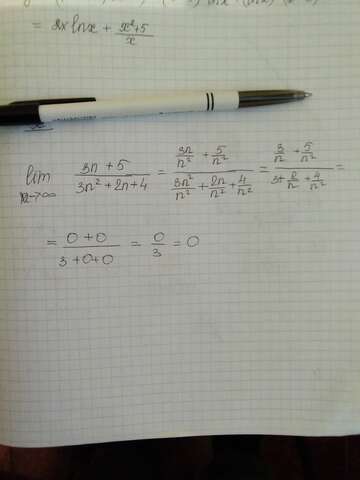 = 2x lnx + \frac{x²+5}{x}
lim_{n→∞} \frac{3n + 5}{3n² + 2n + 4} = \frac{\frac{3n}{n²} + \frac{5}{n²}}{\frac{3n²}{n²} + \frac{2n}{n²} + \frac{4}{n²}} = \frac{\frac{3}{n} + \frac{5}{n²}}{3 + \frac{2}{n} + \frac{4}{n²}} =
= \frac{0 + 0}{3 + 0 + 0} = \frac{0}{3} = 0